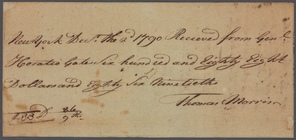 New York Decr. the 2d 1790 Received from Genl.
Horatio Gates Six hundred and Eighty Eight
Dollars and Eighty Six Ninetieth
Thomas Morris